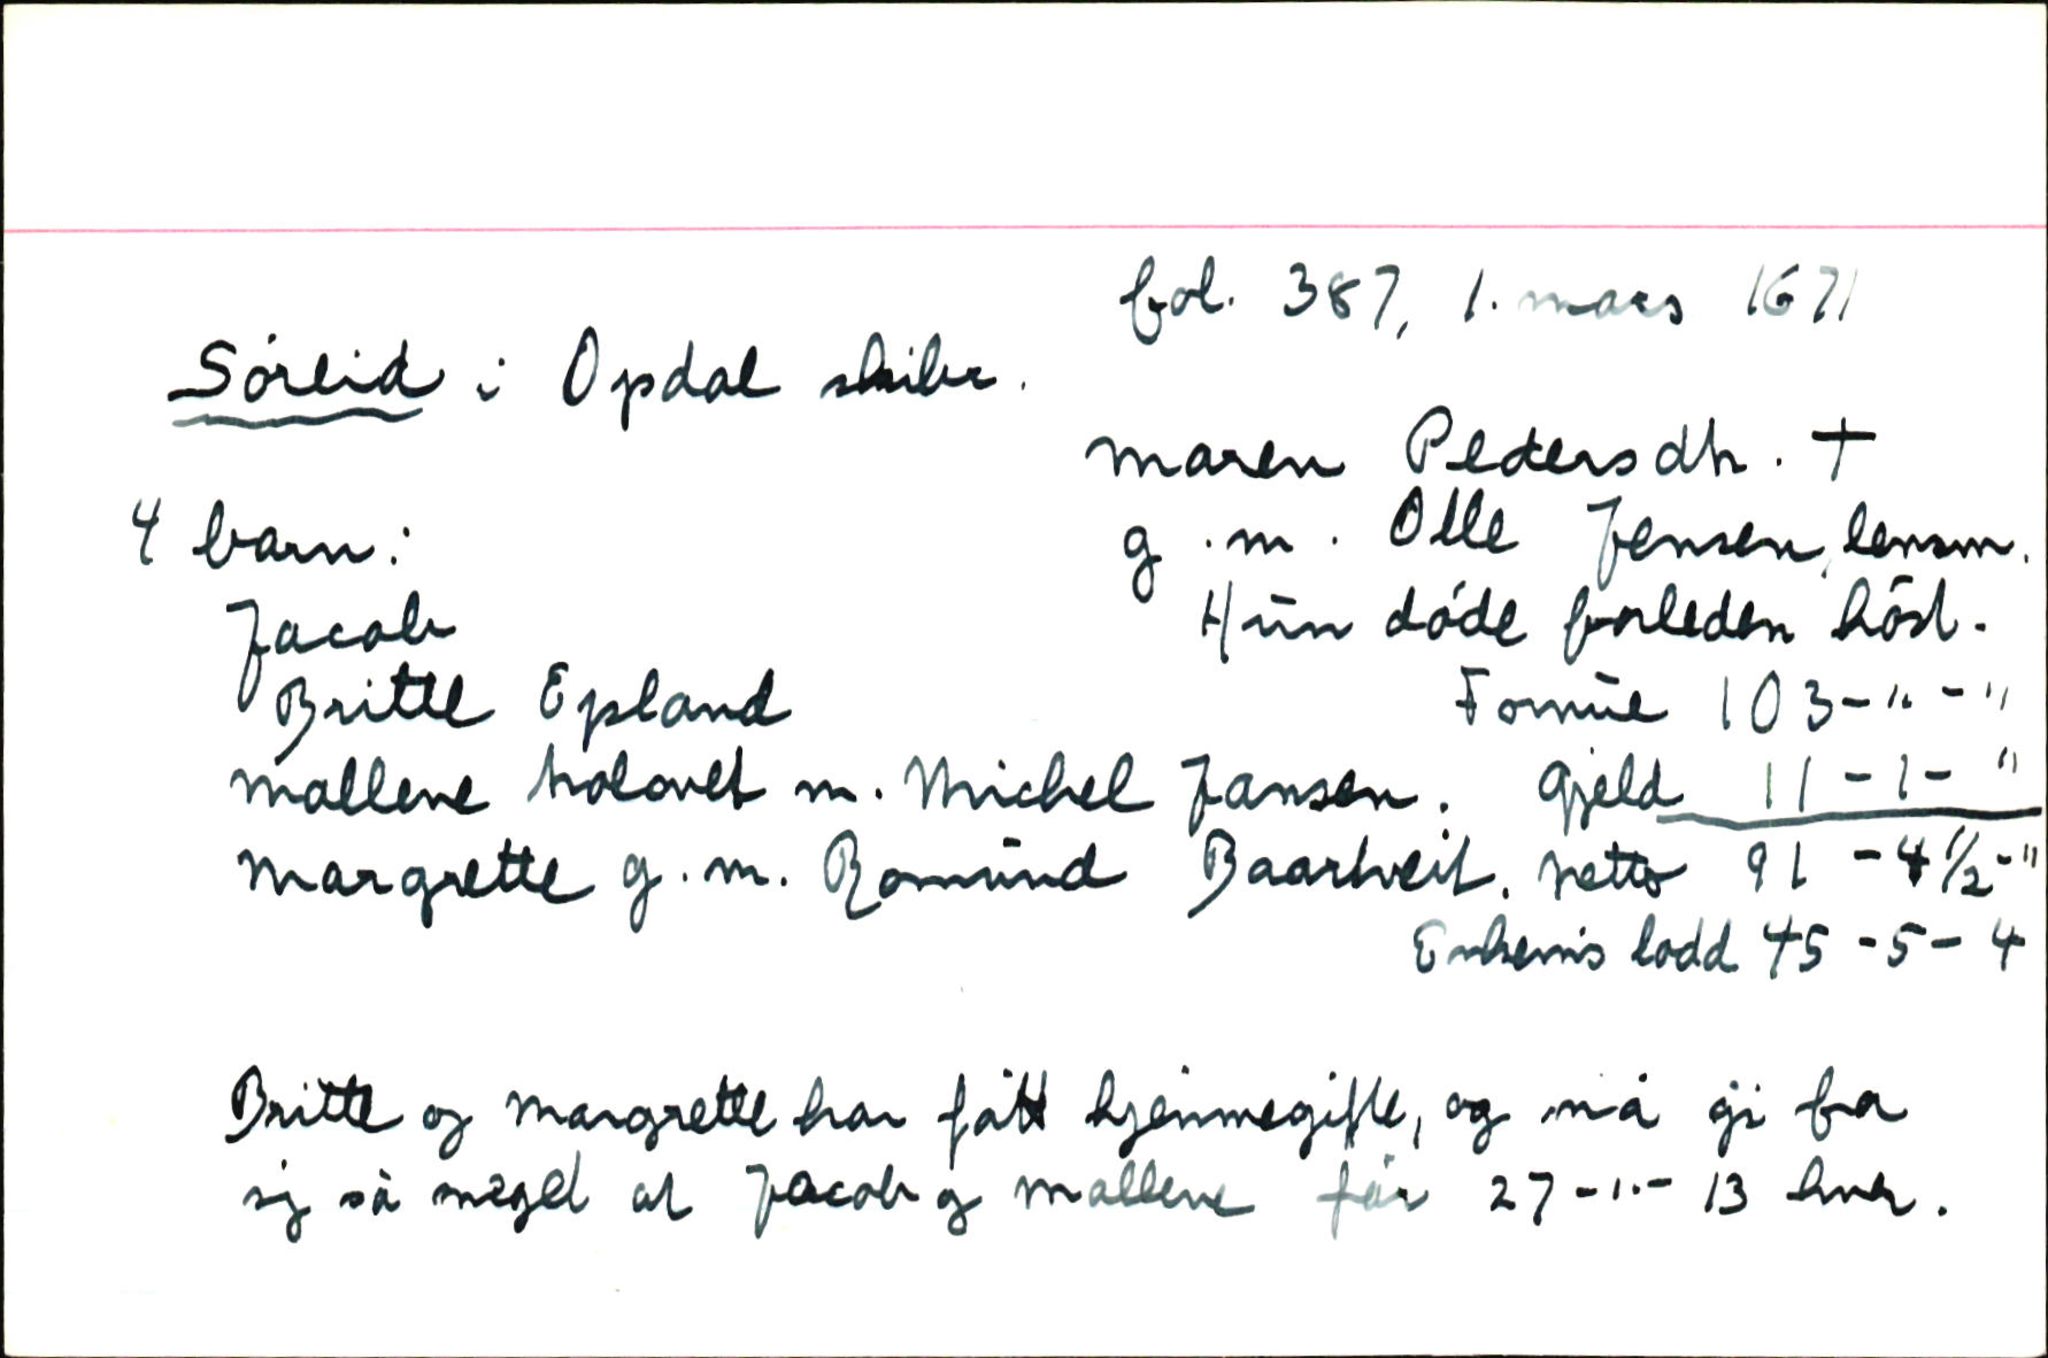 fol. 387, 1. mars 1671
Söreid i Opdal skibr.
Maren Pedersdtr. †
4 barn:
g. m. Olle Jensen, lensm.
Jacob
Hun döde forleden höst.
Britte Epland
Formue 103-"-"
Mallene trolovet m. Michel Jansen.
Gjeld 11-1-"
Margrette g. m. Romund Baartveit.
netto 91-4 1/2-"
Enkem's lodd 45-5-4
Britte og Margrette har fått hjemmegifte, og må gi fra
sig så meget at Jacob og Mallene får 27-"-13 hver.